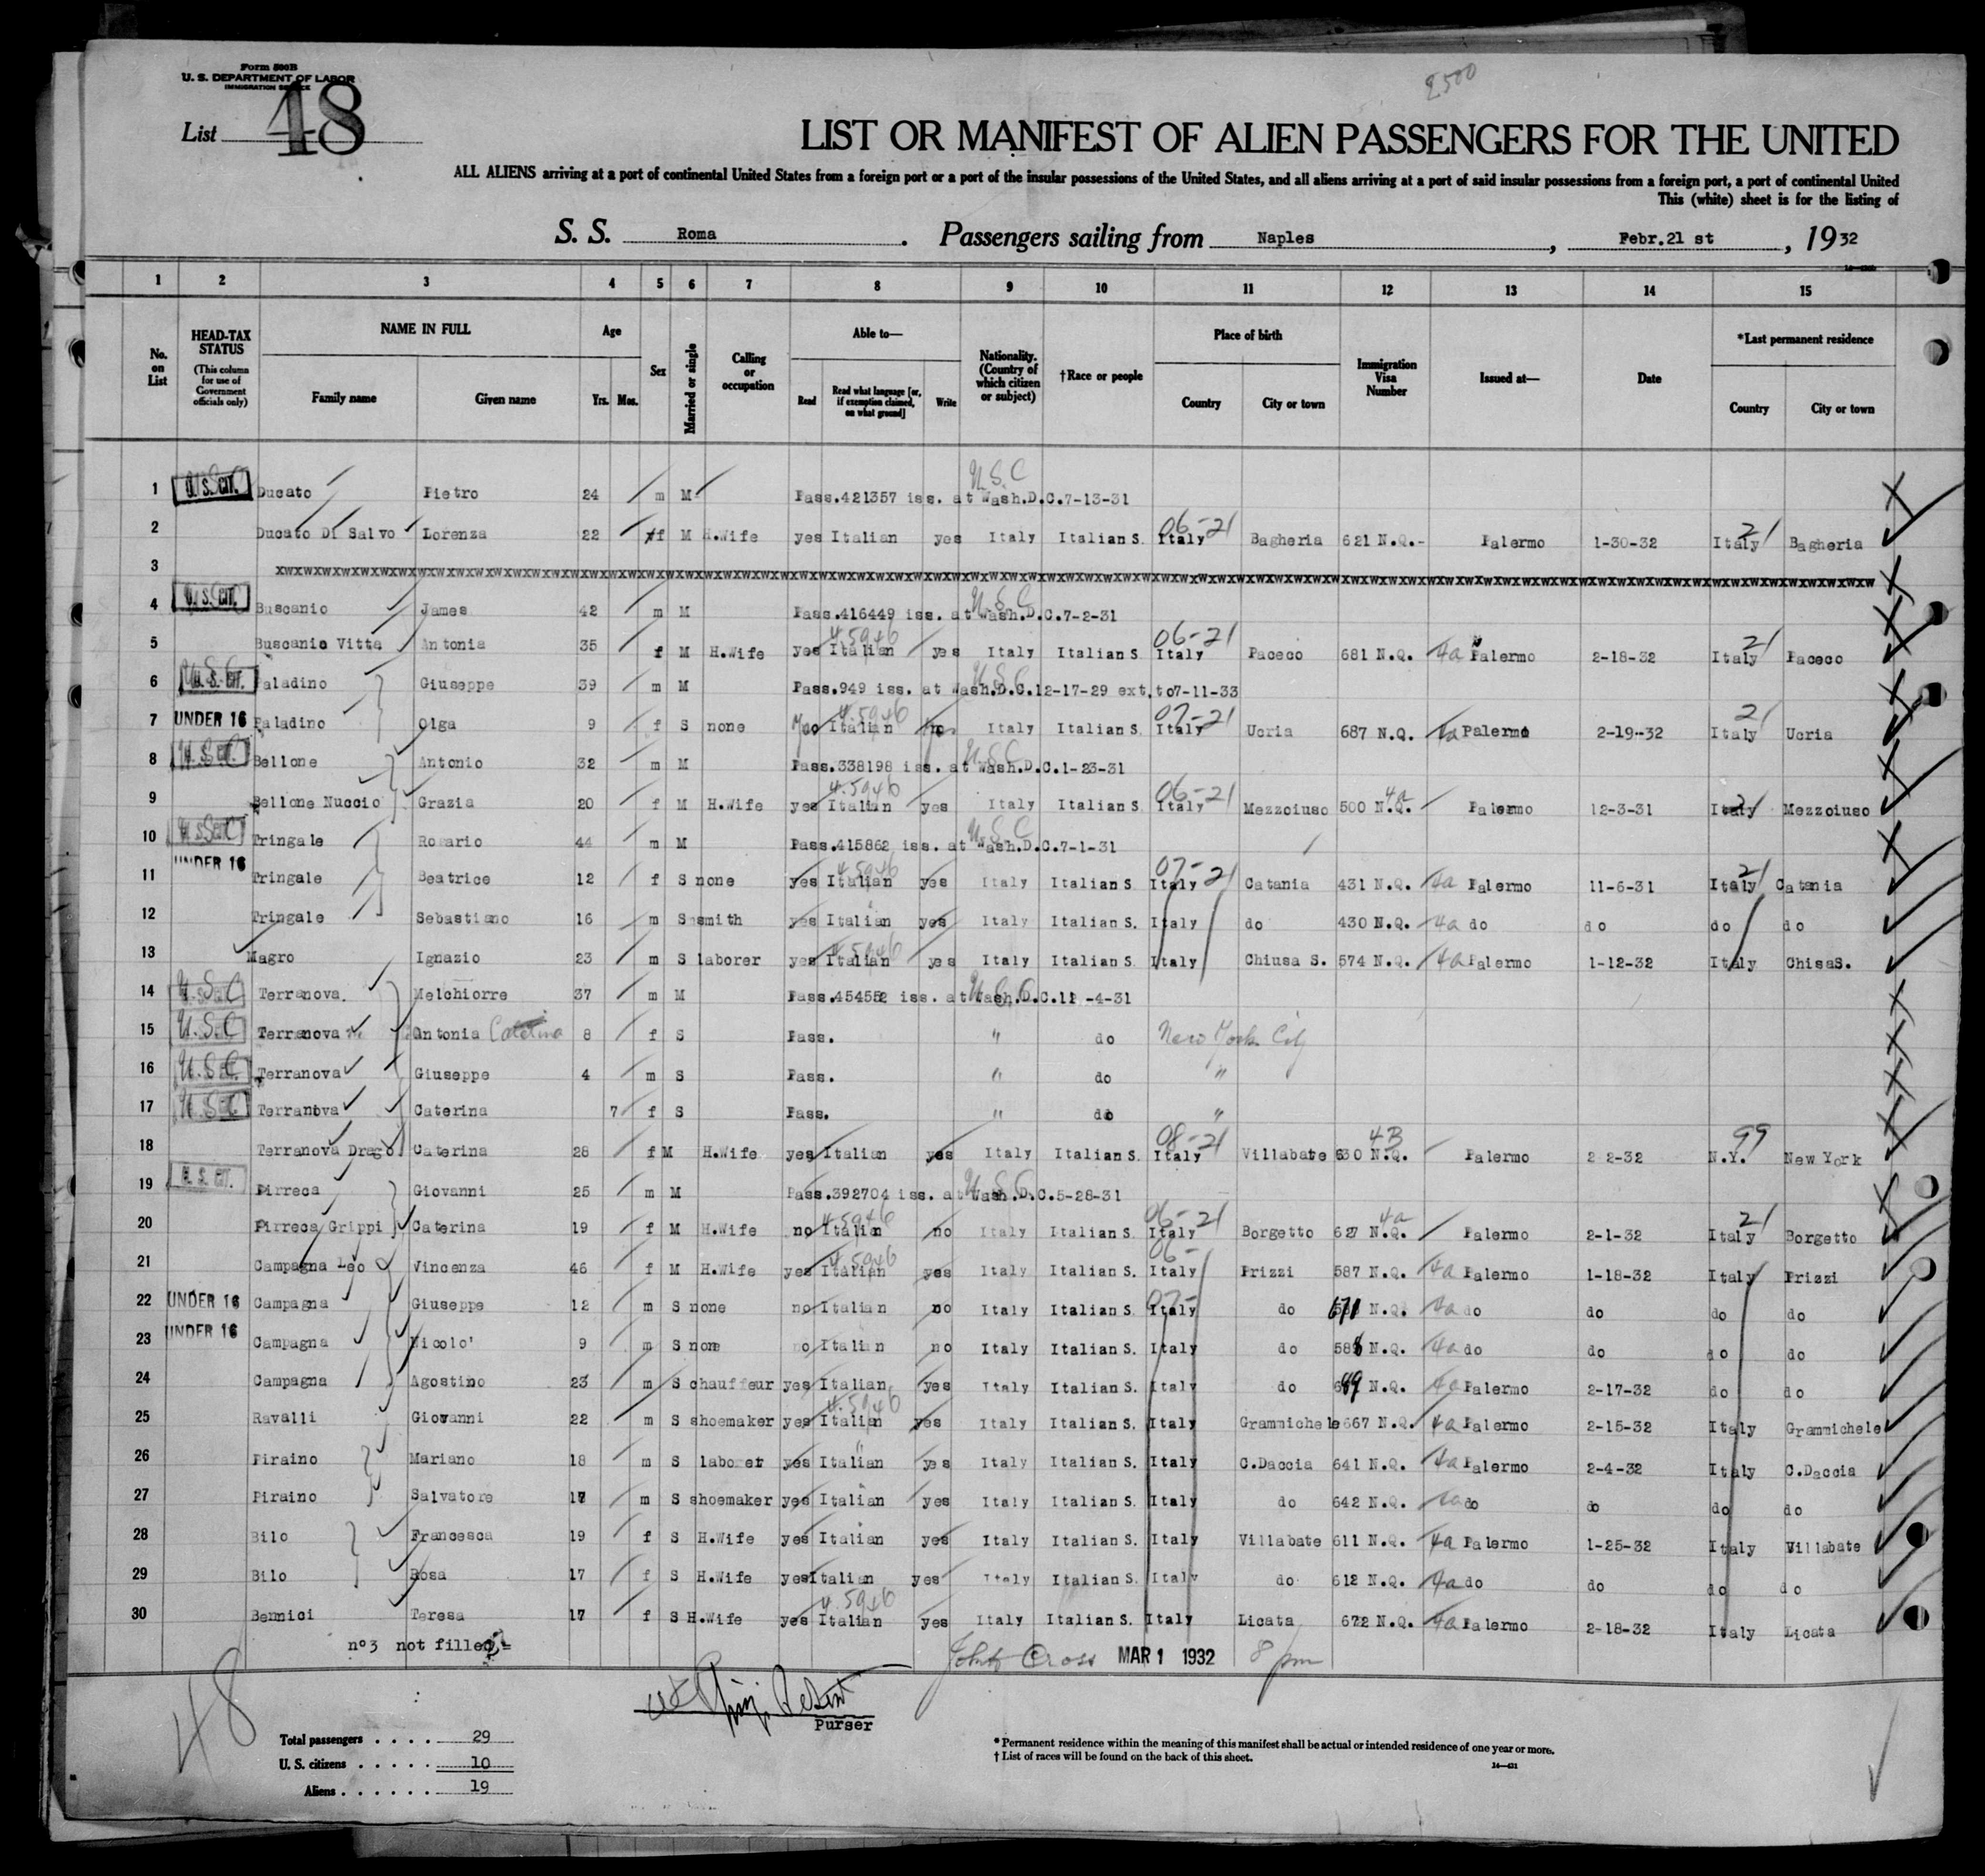 Form 500B
U. S. DEPARTMENT OF LABOR
IMMIGRATION SERVICE
2500
List 48
LIST OR MANIFEST OF ALIEN PASSENGERS FOR THE UNITED
ALL ALIENS arriving at a port of continental United States from a foreign port or a port of the insular possessions of the United States, and all aliens arriving at a port of said insular possessions from a foreign port, a port of continental United
This (white) sheet is for the listing of
S. S. Roma. Passengers sailing from Naples, Febr.21 st, 1932
1 2 3 4 5 6 7 8 9 10 11 12 13 14 15
No. on List
HEAD-TAX STATUS (This column for use of Government officials only)
NAME IN FULL Family name Given name
Age Yrs. Mos.
Sex
Married or single
Calling or occupation
Able to— Read Read what language [or, if exemption claimed, on what ground] Write
Nationality. (Country of which citizen or subject)
†Race or people
Place of birth Country City or town
Immigration Visa Number
Issued at—
Date
*Last permanent residence Country City or town
1 U. S. CIT. Ducato Pietro 24 m M Pass.421357 iss. at Wash.D.C.7-13-31 U.S.C
2 Ducato Di Salvo Lorenza 22 f M H.Wife yes Italian yes Italy Italian S. 06-21 Italy Bagheria 621 N.Q.- Palermo 1-30-32 21 Italy Bagheria
3 xwxwxwxwxwxwxwxwxwxwxwxwxwxwxwxwxwxwxwxwxwxwxwxwxwxwxwxwxwxwxwxwxwxwxwxwxwxwxwxwxwxw
4 U. S. CIT. Buscanio James 42 m M Pass.416449 iss. at Wash.D.C.7-2-31 U.S.C
5 Buscanio Vitta Antonia 35 f M H.Wife yes Italian yes Italy Italian S. 06-21 Italy Paceco 681 N.Q. 4a Palermo 2-18-32 21 Italy Paceco
6 U. S. CIT. U.S.C Paladino Giuseppe 39 m M Pass.949 iss. at Wash.D.C.12-17-29 ext.to7-11-33 U.S.C
7 UNDER 16 Paladino Olga 9 f S none Italian Italy Italian S. 07-21 Italy Ucria 687 N.Q. 4a Palermo 2-19-32 21 Italy Ucria
8 U.S.C Bellone Antonio 32 m M Pass.338198 iss. at Wash.D.C.1-23-31 U.S.C
9 Bellone Nuccio Grazia 20 f M H.Wife yes Italian yes Italy Italian S. 06-21 Italy Mezzoiuso 500 N.Q. 4a Palermo 12-3-31 Italy Mezzoiuso
10 U.S.C Tringale Rosario 44 m M Pass.415862 iss. at Wash.D.C.7-1-31 U.S.C
11 UNDER 16 Tringale Beatrice 12 f S none yes Italian yes Italy Italian S. 07-21 Italy Catania 431 N.Q. 4a Palermo 11-6-31 21 Italy Catania
12 Tringale Sebastiano 16 m S smith yes Italian yes Italy Italian S. Italy do 430 N.Q. 4a do do do do
13 Magro Ignazio 23 m S laborer yes Italian yes Italy Italian S. Italy Chiusa S. 574 N.Q. 4a Palermo 1-12-32 Italy ChisaS.
14 U.S.C Terranova. Melchiorre 37 m M Pass.454552 iss. at Wash.D.C. -4-31 U.S.C
15 U.S.C Terranova Antonia 8 f S Pass. " do New York City
16 U.S.C Terranova Giuseppe 4 m S Pass. " do "
17 U.S.C Terranova Caterina 7 f S Pass. " do "
18 Terranova Drago Caterina 28 f M H.Wife yes Italian yes Italy Italian S. 08-21 Italy Villabate 630 N.Q. 4B Palermo 2 2-32 99 N.Y. New York
19 U. S. CIT. Pirreca Giovanni 25 m M Pass.392704 iss. at Wash.D.C.5-28-31 U.S.C
20 Pirreca Grippi Caterina 19 f M H.Wife no Italian no Italy Italian S. 06-21 Italy Borgetto 627 N.Q. 4a Palermo 2-1-32 21 Italy Borgetto
21 Campagna Leo Vincenza 46 f M H.Wife yes Italian yes Italy Italian S. 06- Italy Prizzi 587 N.Q. 4a Palermo 1-18-32 Italy Prizzi
22 UNDER 16 Campagna Giuseppe 12 m S none no Italian no Italy Italian S. 07- Italy do N.Q. 4a do do do do
23 UNDER 16 Campagna Nicolo' 9 m S none no Italian no Italy Italian S. Italy do 588 N.Q. 4a do do do do
24 Campagna Agostino 23 m S chauffeur yes Italian yes Italy Italian S. Italy do 689 N.Q. 4a Palermo 2-17-32 do do
25 Ravalli Giovanni 22 m S shoemaker yes Italian yes Italy Italian S. Italy Grammichele 667 N.Q. 4a Palermo 2-15-32 Italy Grammichele
26 Piraino Mariano 18 m S laborer yes Italian yes Italy Italian S. Italy C.Daccia 641 N.Q. 4a Palermo 2-4-32 Italy C.Daccia
27 Piraino Salvatore 17 m S shoemaker yes Italian yes Italy Italian S. Italy do 642 N.Q. 4a do do do do
28 Bilo Francesca 19 f S H.Wife yes Italian yes Italy Italian S. Italy Villabate 611 N.Q. 4a Palermo 1-25-32 Italy Villabate
29 Bilo Rosa 17 f S H.Wife yes Italian yes Italy Italian S. Italy do 612 N.Q. 4a do do do do
30 Bennici Teresa 17 f S H.Wife yes Italian yes Italy Italian S. Italy Licata 672 N.Q. 4a Palermo 2-18-32 Italy Licata
n°3 not filled
John Cross MAR 1 1932 8 pm
Purser
48
Total passengers . . . . 29
U. S. citizens . . . . . 10
Aliens . . . . . . 19
* Permanent residence within the meaning of this manifest shall be actual or intended residence of one year or more.
† List of races will be found on the back of this sheet.
14—421